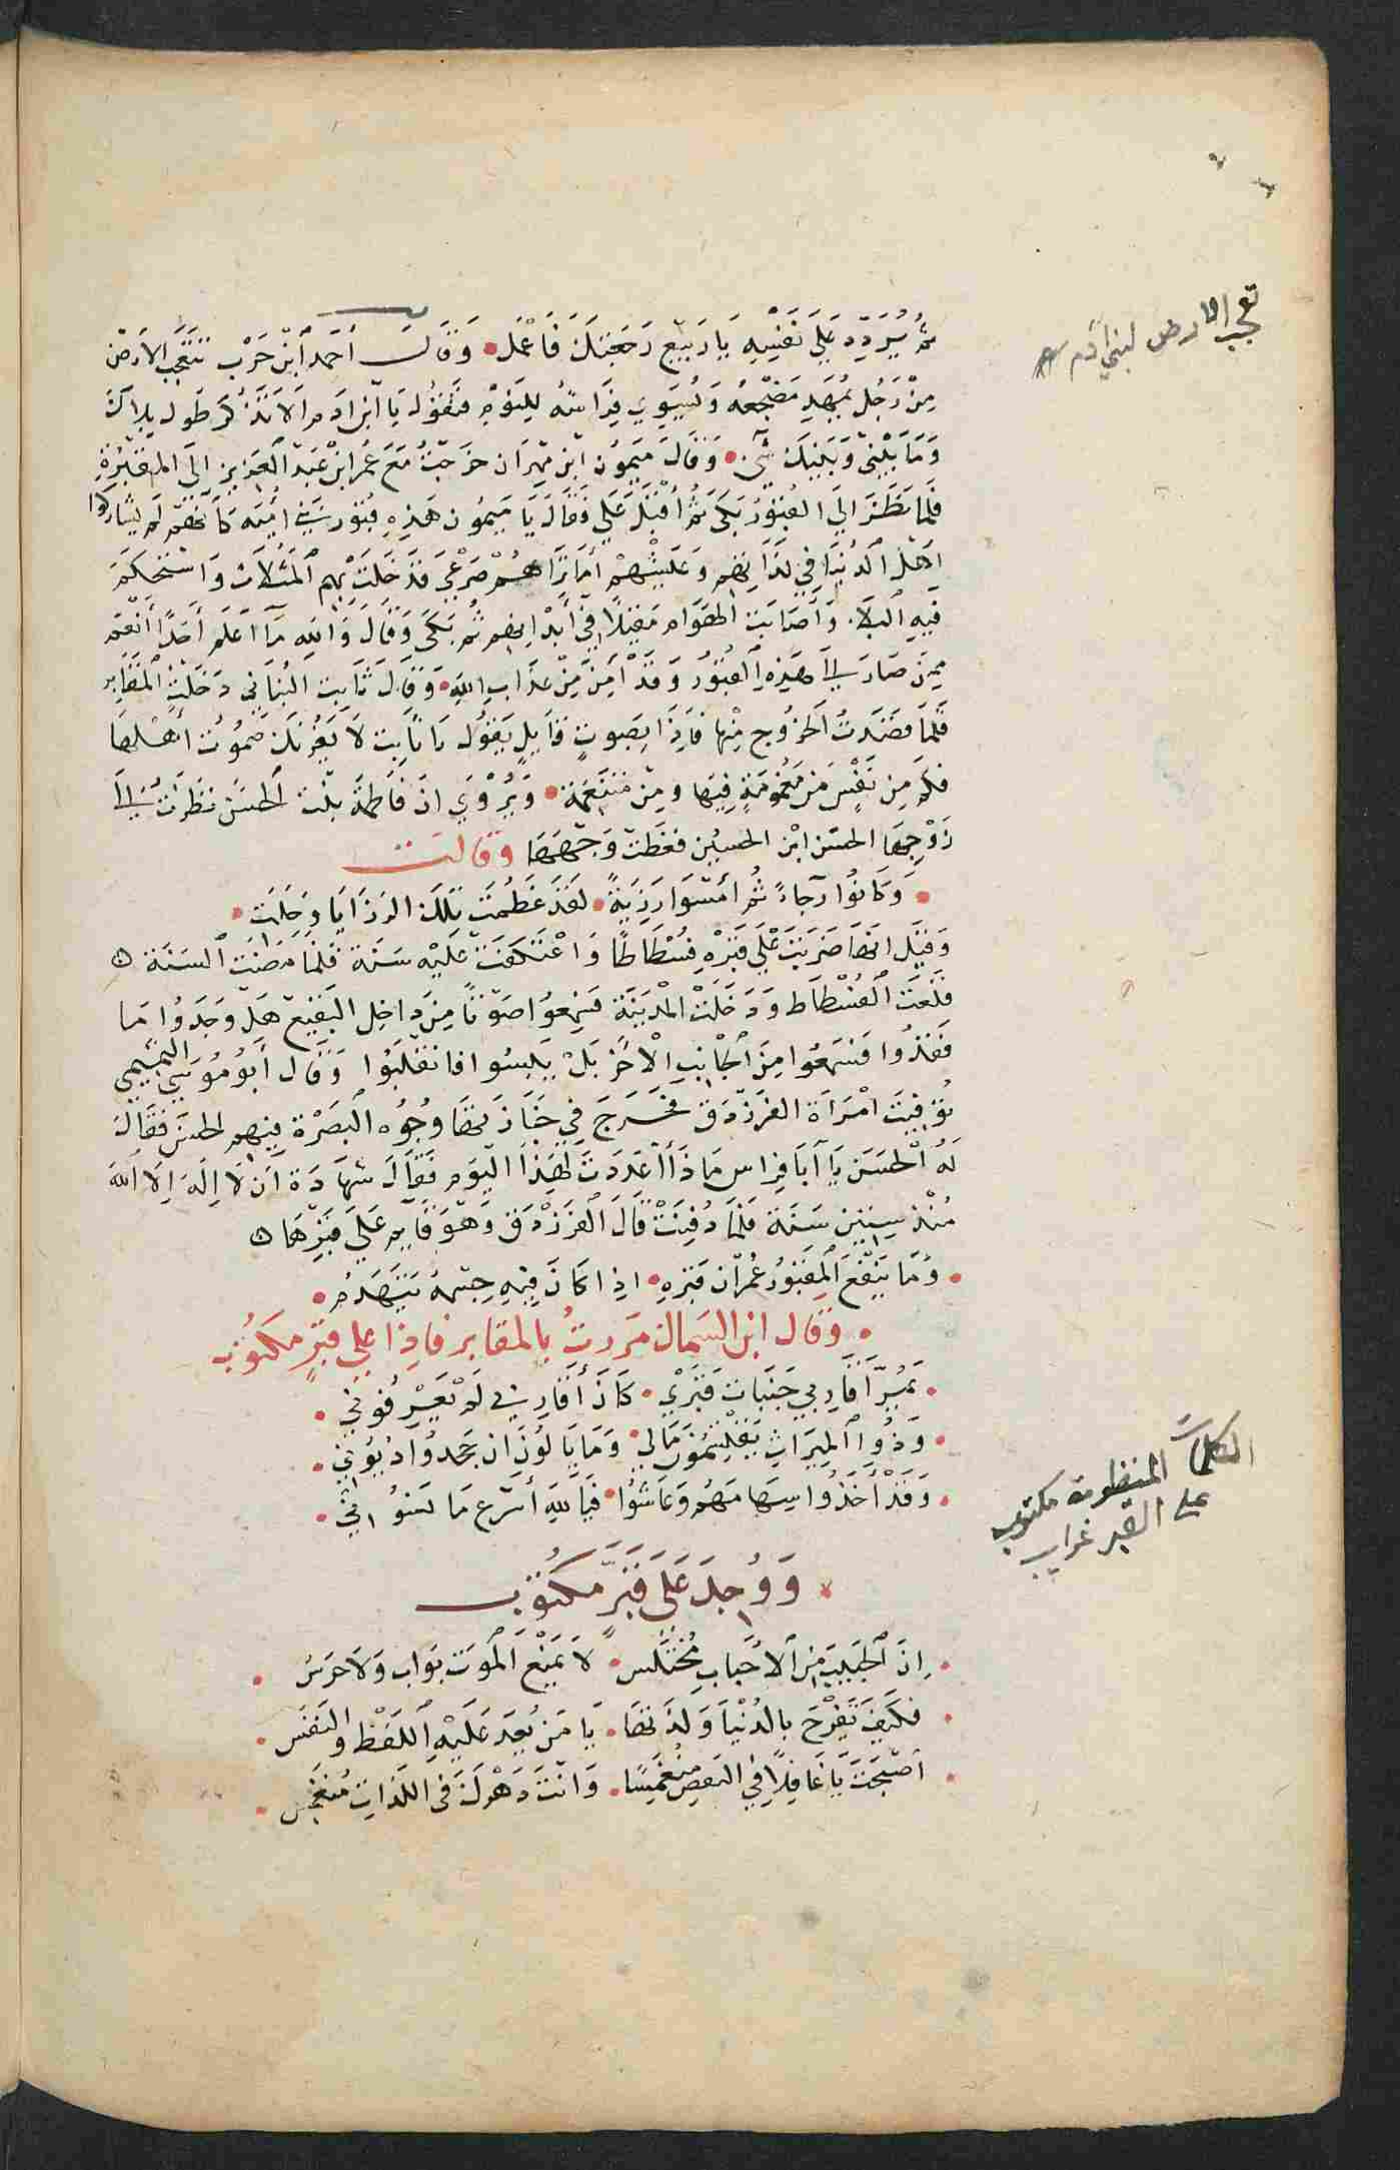 تعجب الارض لبني آدم
ثم يُردد على نفسه يا ربيع رجعتك فاعمل وقال أحمد ابن حرب تتعجب الارض
من رجل يمهد مضجعه ويسوي فراشه للنوم فتقول يا ابن ادم الا تذكر طول بلاك
وما بيني وبينك شئ وقال ميمون ابن مهران خرجت مع عمر ابن عبد العزيز الى المقبرة
فلما نظر الي القبور بكى ثم أقبل علي وقال يا ميمون هذه قبور بني اميه كانهم لم يشاركوا
اهل الدنيا في لذاتهم وعيشهم أما تراهم صرعى قد خلت بهم المثلات واستحكم
فيه البلا. وأصابت الهوام مقيلا في أبدانهم ثم بكى وقال والله ما اعلم أحدا أنعم
ممن صار الي هذه القبور وقد أمن من عذاب الله وقال ثابت البناني دخلت المقابر
فلما قصدت الخروج منها فاذا بصوت قايل يقول يا ثابت لا يغرنك صموت أهلها
فكم من نفس مغمومة فيها ومن متنعمة ويروي ان فاطمة بنت الحسن نظرت الى
زوجها الحسن ابن الحسين فغطت وجهها وقالت
وكانوا رجاءً ثم أمسوا رزية لقد عظمت تلك الرزايا وجلت
وقيل انها ضربت على قبره فسطاطا واعتكفت عليه سنة فلما مضت السنة ه
قلعت الفسطاط ودخلت المدينة فسمعوا صوتًا من داخل البقيع هل وجدوا ما
فقدوا فسمعوا من الجانب الأخر بل يئسوا فانقلبوا وقال أبو موسى التميمي
توفيت امرأة الفرزدق فخرج في جنازتها وجوه البصرة فيهم الحسن فقال
له الحسن يا أبا فراس ماذا أعددت لهذا اليوم فقال شهادة ان لا اله الا الله
منذ ستين سنة فلما دفنت قال الفرزدق وهو قايم على قبرها ه
وما ينفع المقبور عمران قبره اذا كان فيه جسمه يتهدم
وقال ابن السماك مررت بالمقابر فاذا على قبر مكتوب
يمر أقاربي جنبات قبري كان أقاربي لم يعرفوني
وذووا الميراث يقتسمون مالي وما يالون ان جحدوا ديوني
وقد أخذوا سهامهم وعاشوا فيالله أسرع ما نسوني
الكلمات المنظومة مكتوب
على القبر غرايب
ووجد على قبر مكتوب
ان الحبيب من الأحباب مختلس لا يمنع الموت بواب ولا حرس
فكيف تفرح بالدنيا ولذتها يا من يعد عليه اللفظ والنفس
أصبحت يا غافلا في النقص منغمسا وانت دهرك في اللذات منغمس